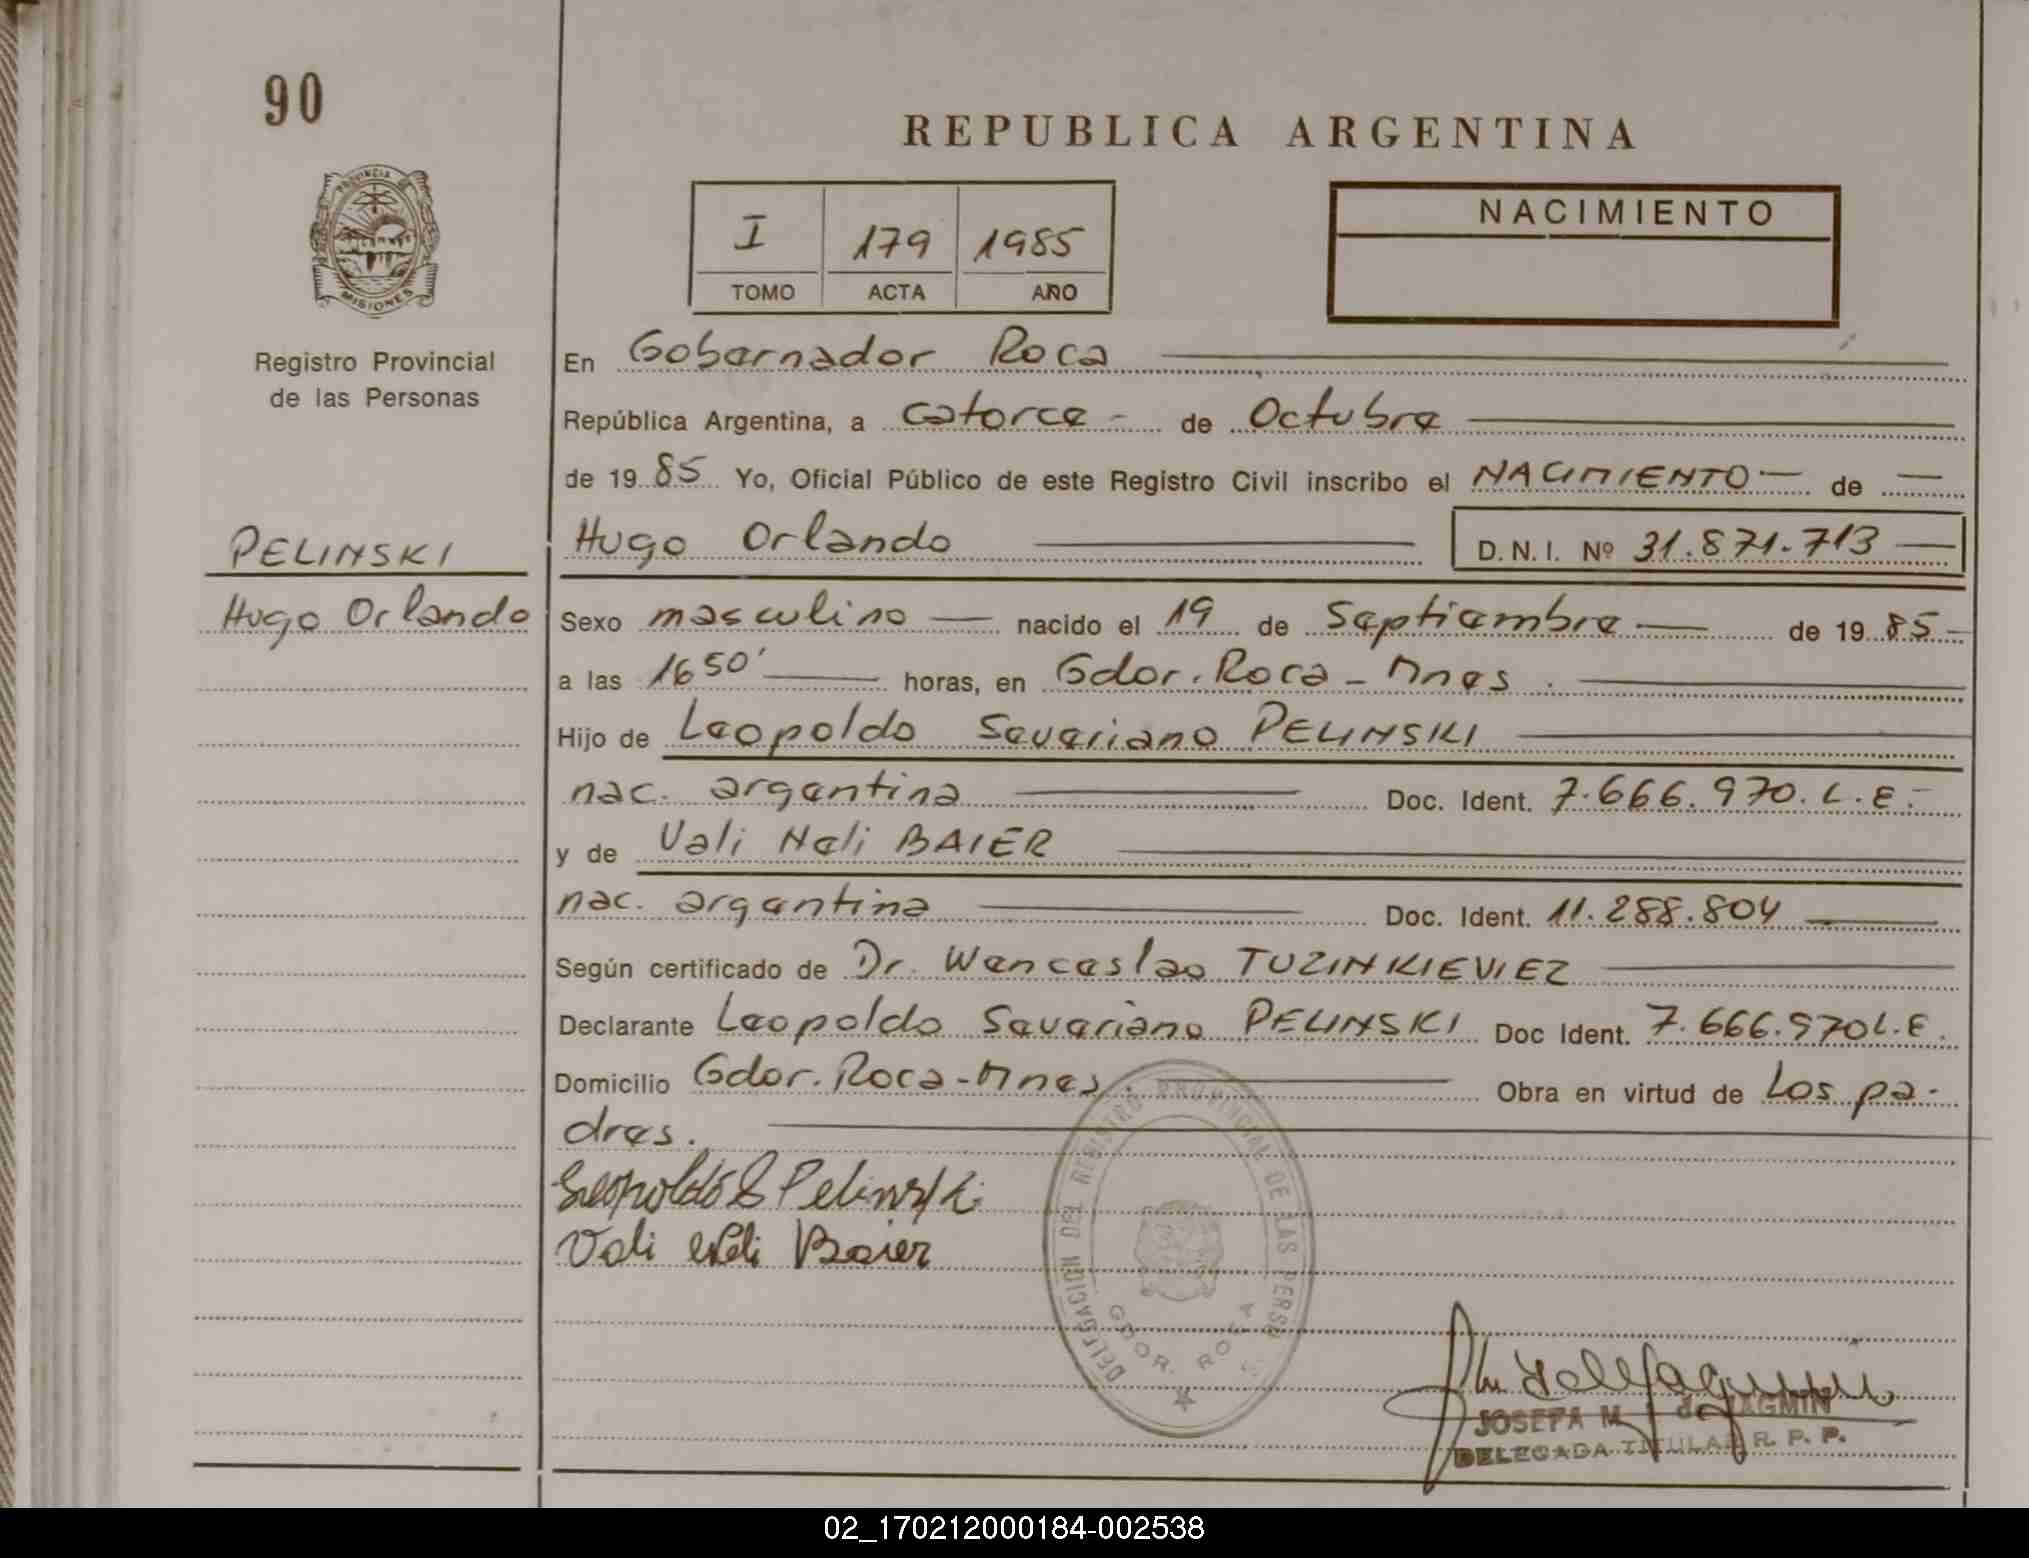 90
REPUBLICA ARGENTINA
PROVINCIA DE
MISIONES
I 179 1985
TOMO ACTA AÑO
NACIMIENTO
Registro Provincial
de las Personas
En Gobernador Roca
República Argentina, a catorce - de Octubre
de 19 85 Yo, Oficial Público de este Registro Civil inscribo el NACIMIENTO — de —
PELINSKI
Hugo Orlando D. N. I. Nº 31.871.713 —
Hugo Orlando
Sexo masculino — nacido el 19 de Septiembre — de 19 85 -
a las 16 50' — horas, en Gdor. Roca - Mnes.
Hijo de Leopoldo Severiano PELINSKI
nac. argentina — Doc. Ident. 7.666.970. L.E.-
y de Vali Neli BAIER
nac. argentina — Doc. Ident. 11.288.804 —
Según certificado de Dr. Wenceslao TUZINKIEVIEZ
Declarante Leopoldo Severiano PELINSKI Doc Ident. 7.666.970 L.E.
Domicilio Gdor. Roca - Mnes. — Obra en virtud de Los pa-
dres.
Leopoldo S Pelinski
Vali Neli Baier
DELEGACION DEL REGISTRO PROVINCIAL DE LAS PERSONAS
GDOR. ROCA
JOSEFA M. de JAGMIN
DELEGADA TITULAR R. P. P.
02_170212000184-002538